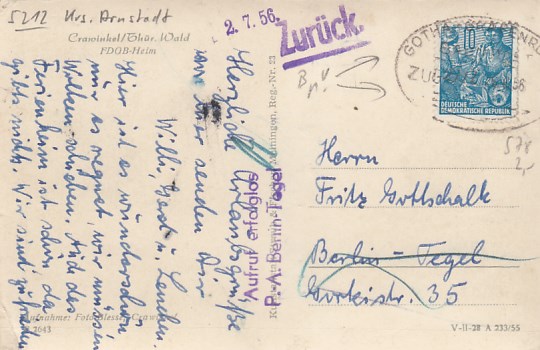 5212 Krs. Arnstadt
Crawinkel/Thür. Wald
FDGB-Heim
2.7.56.
Zurück.
Herzliche Urlaubsgrüße
von hier senden Dir
Willi, Gert u.
Hier ist es wunderschön
nur es regnet, wir müssen
Wolken schieben. Auch das
Ferienheim ist schön, das
gibts nicht. Wir sind zufrieden
Aufruf erfolglos
P. A. Berlin-Tegel
Meiningen, Reg.-Nr. 23
GOTHA
ZUG
56
10
DEUTSCHE
DEMOKRATISCHE REPUBLIK
578
2,-
Herrn
Fritz Gottschalk
Berlin-Tegel
Gorkistr. 35
Aufnahme: Foto-Blessing, Crawinkel
2043
V-II-28 A 233/55